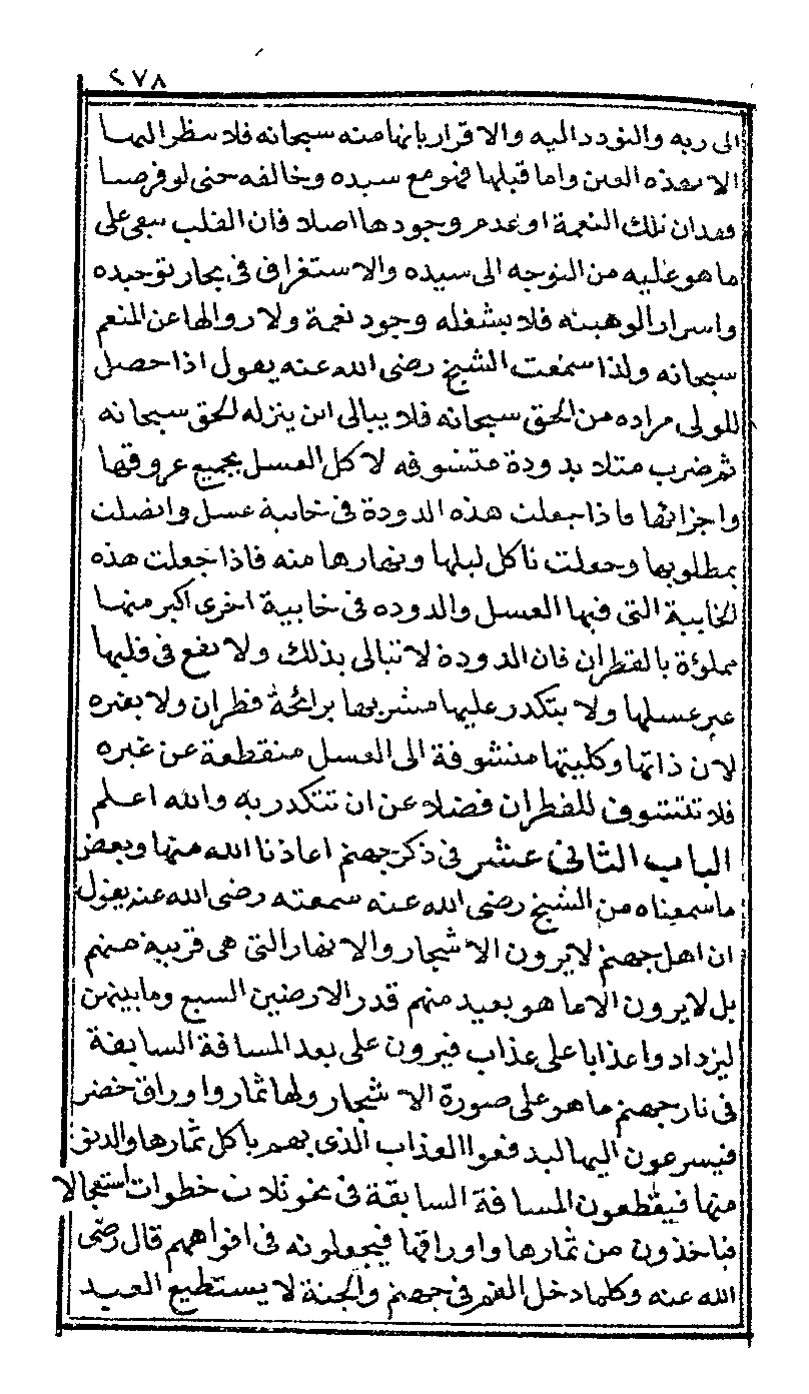 ٢٧٨
الى ربه والتودد اليه والاقرار بانها منه سبحانه فلا ينظر اليها
الا بهذه العين واما قبلها فهو مع سيده وخالقه حتى لو فرضنا
فقدان تلك النعمة او عدم وجودها اصلا فان القلب يبقى على
ما هو عليه من التوجه الى سيده والاستغراق في بحار توحيده
واسرار الوهيته فلا يشغله وجود نعمة ولا زوالها عن المنعم
سبحانه ولذا سمعت الشيخ رضى الله عنه يقول اذا حصل
للولى مراده من الحق سبحانه فلا يبالى اين ينزله الحق سبحانه
ثم ضرب مثلا بدودة متشوفه لاكل العسل بجميع عروقها
واجزائها فاذا جعلت هذه الدودة في خابية عسل واتصلت
بمطلوبها وجعلت تاكل ليلها ونهارها منه فاذا جعلت هذه
الخابية التى فيها العسل والدوده في خابية اخرى اكبر منها
مملوءة بالقطران فان الدودة لا تبالى بذلك ولا يقع في قلبها
غير عسلها ولا يتكدر عليها مشربها برائحة قطران ولا بغيره
لان ذاتها وكليتها متشوفة الى العسل منقطعة عن غيره
فلا تتشوف للقطران فضلا عن ان تتكدر به والله اعلم
الباب الثانى عشر في ذكر جهنم اعاذنا الله منها وبعض
ما سمعناه من الشيخ رضى الله عنه سمعته رضى الله عنه يقول
ان اهل جهنم لا يرون الاشجار والانهار التى هى قريبة منهم
بل لا يرون الا ما هو بعيد منهم قدر الارضين السبع وما بينهن
ليزدادوا عذابا على عذاب فيرون على بعد المسافة السابقة
في نار جهنم ما هو على صورة الاشجار ولها ثمار واوراق خضر
فيسرعون اليها ليدفعوا العذاب الذى بهم باكل ثمارها والدنو
منها فيقطعون المسافة السابقة في نحو ثلاث خطوات استعجالا
فياخذون من ثمارها واوراقها فيجعلونه في افواههم قال رضى
الله عنه وكلما دخل الفم في جهنم والجنة لا يستطيع العبد